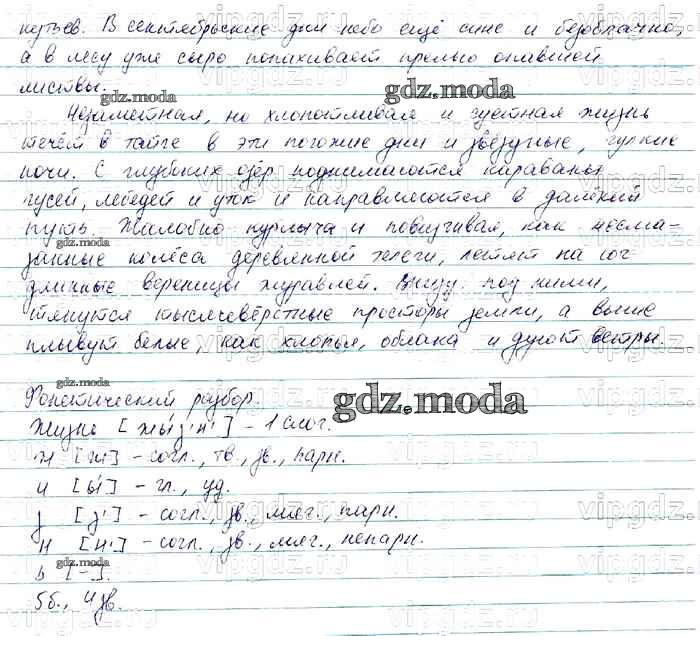 кутьев. В сентябрьские дни небо ещё сине и безоблачно,
а в лесу уже сыро попахивает прелью опавшей
листвы.
gdz.moda
gdz.moda
Незаметная, но хлопотливая и суетная жизнь
течёт в тайге в эти погожие дни и звёздные, гулкие
ночи. С глубоких озёр поднимаются караваны
гусей, лебедей и уток и направляются в далёкий
путь. Жалобно курлыча и повизгивая, как несма-
gdz.moda
занные колёса деревянной телеги, летят на юг
длинные вереницы журавлей. Внизу, под ними,
тянутся тысячевёрстные просторы земли, а выше
плывут белые, как хлопья, облака и дуют ветры.
gdz.moda
Фонетический разбор.
gdz.moda
Жизнь [жы́з'н'] – 1 слог.
ж [ж] – согл., тв., зв., парн.
и [ы́] – гл., уд.
з [з'] – согл., зв., мягк., парн.
gdz.moda
н [н'] – согл., зв., мягк., непарн.
ь [–].
gdz.moda
5б., 4 зв.
vipgdz.ru